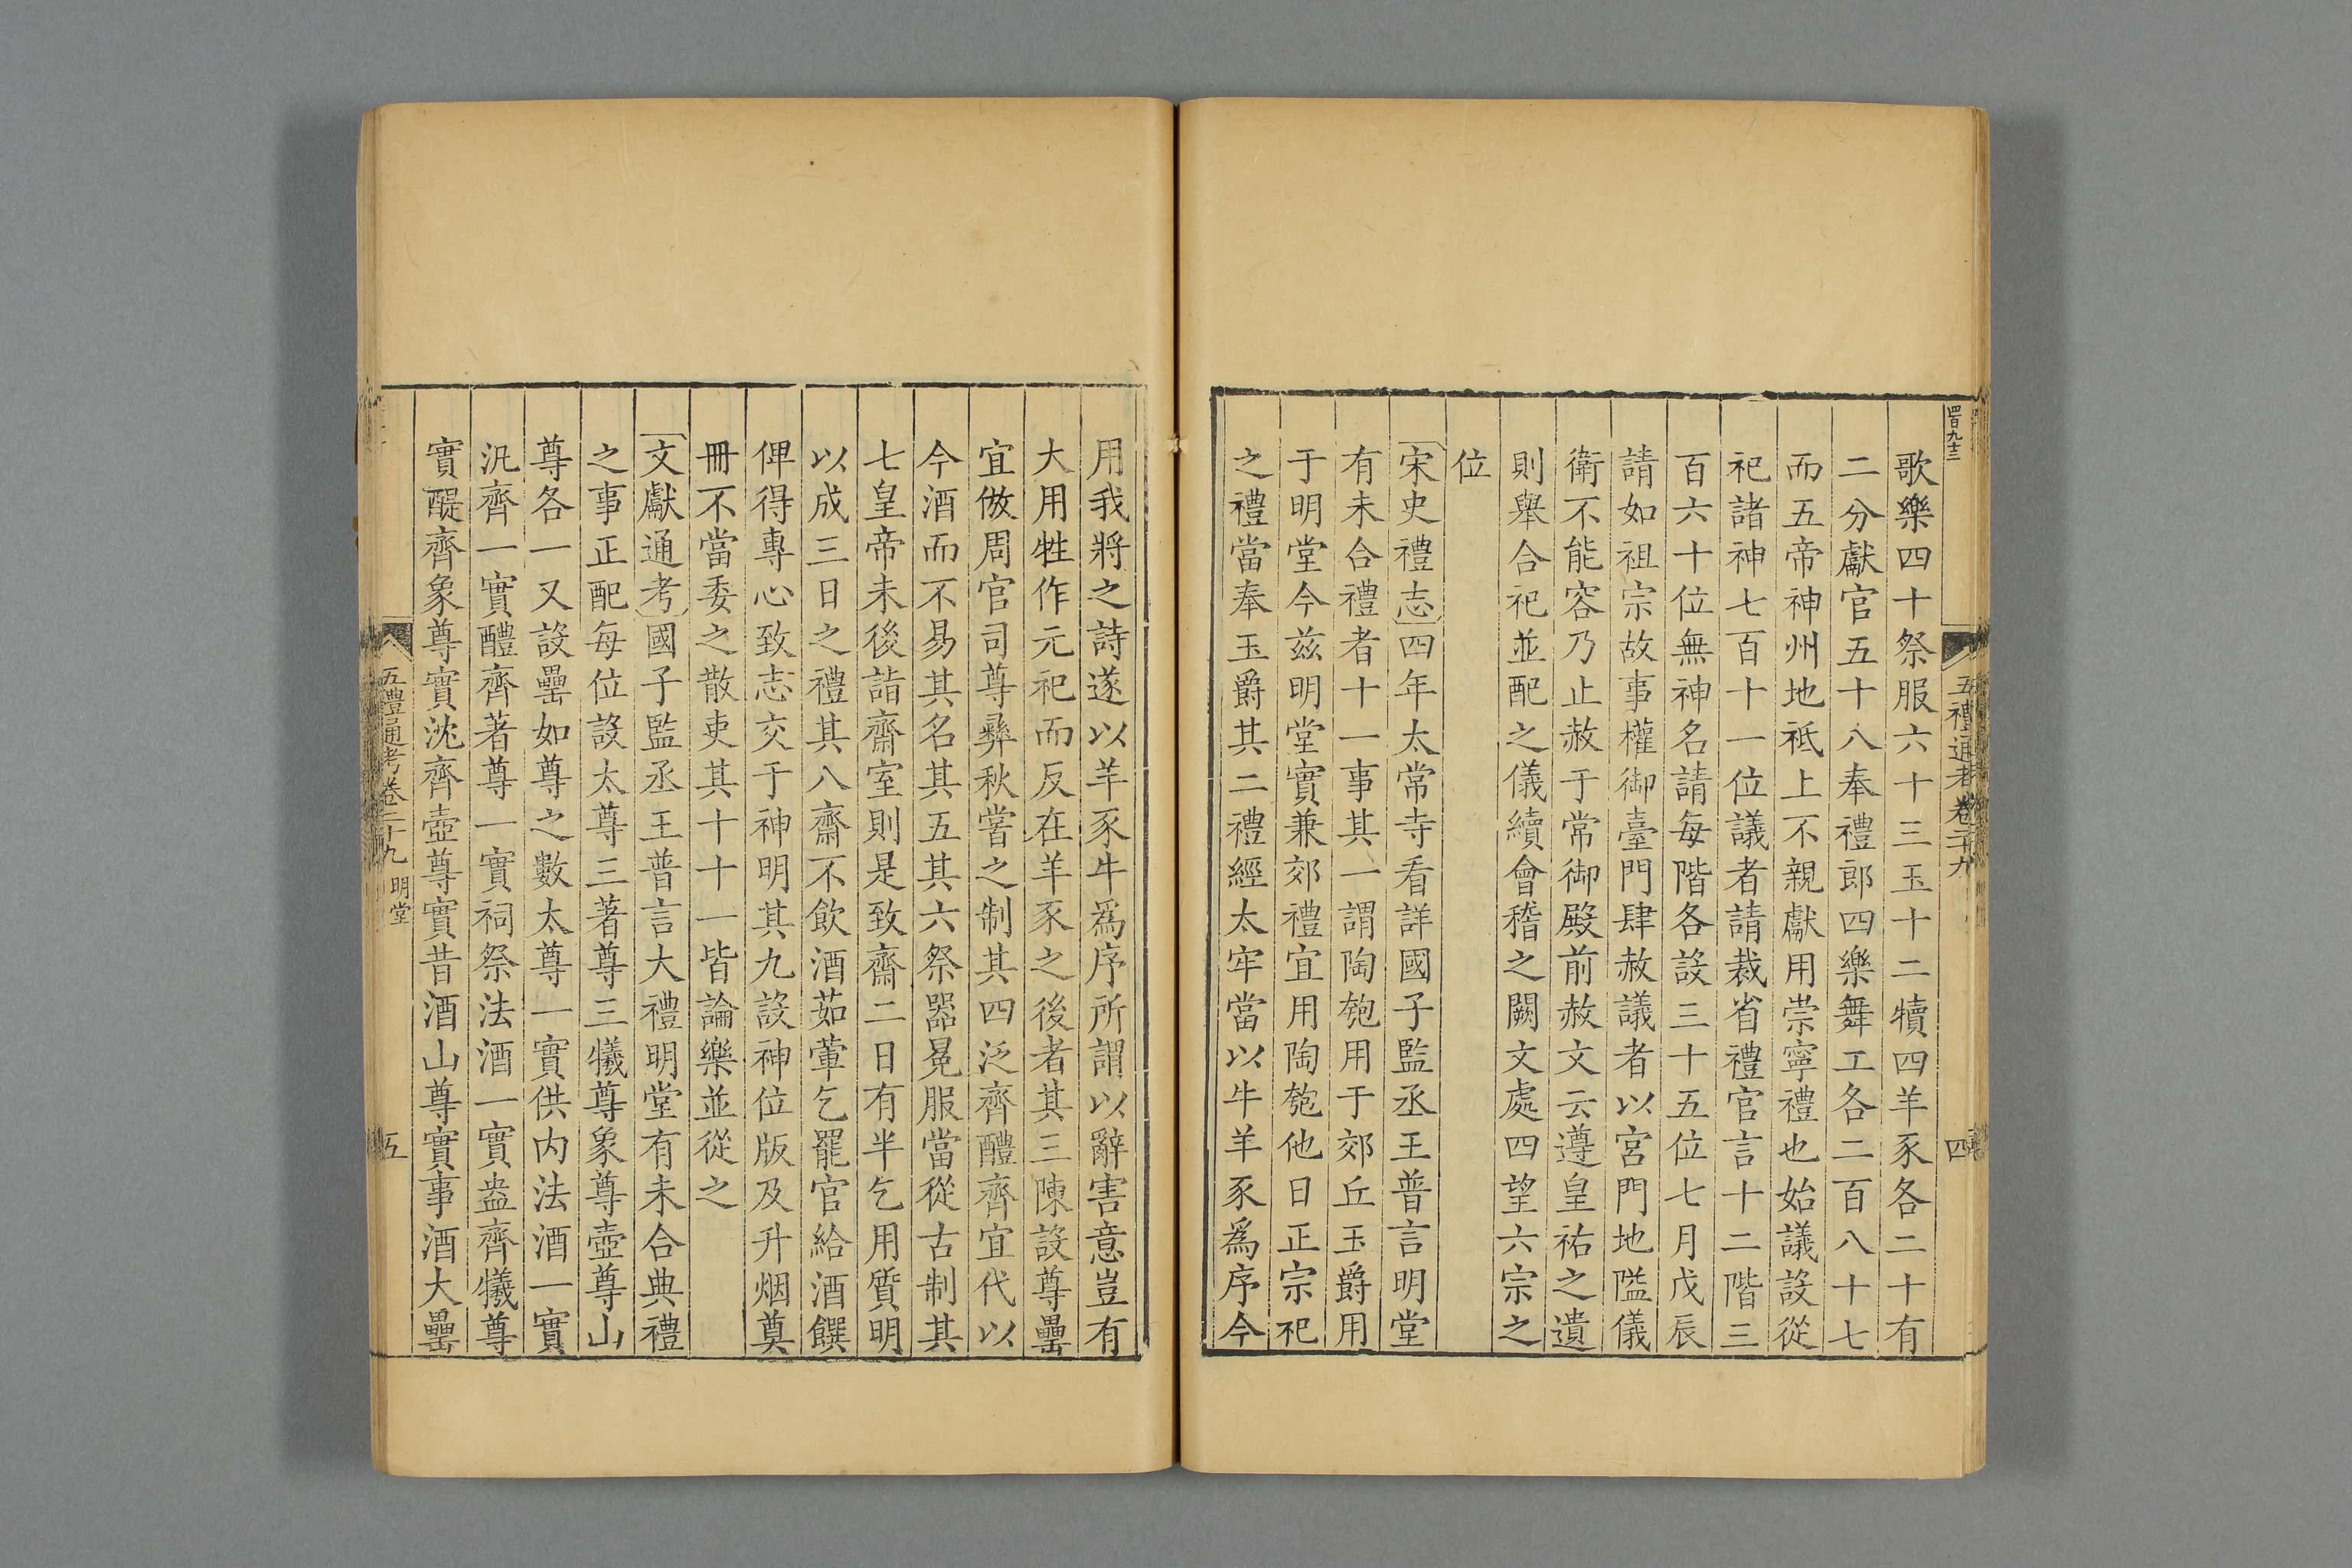 四百九十三
五禮通考卷二十九
四
歌樂四十祭服六十三玉十二犢四羊豕各二十有
二分獻官五十八奉禮郎四樂舞工各二百八十七
而五帝神州地祗上不親獻用崇寧禮也始議設從
祀諸神七百十一位議者請裁省禮官言十二階三
百六十位無神名請每階各設三十五位七月戊辰
請如祖宗故事權御臺門肆赦議者以宮門地隘儀
衛不能容乃止赦于常御殿前赦文云遵皇祐之遺
則舉合祀並配之儀續會稽之闕文處四望六宗之
位
宋史禮志四年太常寺看詳國子監丞王普言明堂
有未合禮者十一事其一謂陶匏用于郊丘玉爵用
于明堂今茲明堂實兼郊禮宜用陶匏他日正宗祀
之禮當奉玉爵其二禮經太牢當以牛羊豕為序今
用我將之詩遂以羊豕牛為序所謂以辭害意豈有
大用牲作元祀而反在羊豕之後者其三陳設尊罍
宜倣周官司尊彝秋嘗之制其四泛齊醴齊宜代以
今酒而不易其名其五其六祭器冕服當從古制其
七皇帝未後詣齋室則是致齋二日有半乞用質明
以成三日之禮其八齋不飲酒茹葷乞罷官給酒饌
俾得專心致志交于神明其九設神位版及升烟奠
冊不當委之散吏其十十一皆論樂並從之
文獻通考國子監丞王普言大禮明堂有未合典禮
之事正配每位設太尊三著尊三犧尊象尊壺尊山
尊各一又設罍如尊之數太尊一實供內法酒一實
汎齊一實醴齊著尊一實祠祭法酒一實盎齊犧尊
實醍齊象尊實沈齊壺尊實昔酒山尊實事酒大罍
五禮通考卷二十九 明堂
五